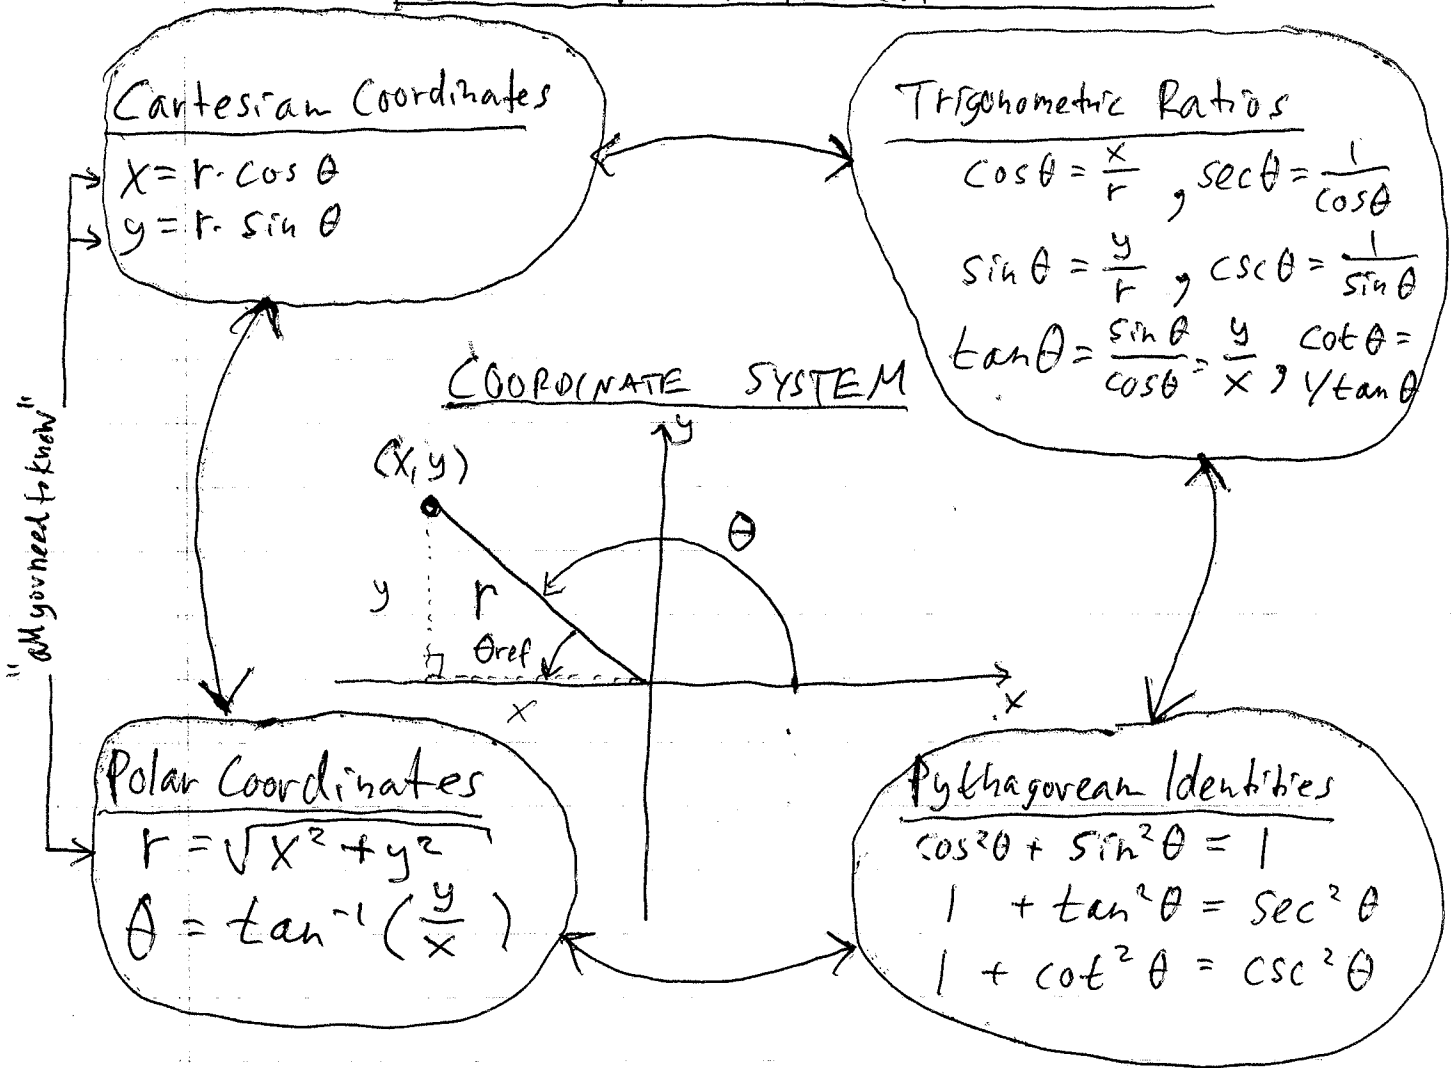 Cartesian Coordinates
x = r. cos θ
y = r. sin θ
Trigonometric Ratios
cosθ = x/r , secθ = 1/cosθ
sin θ = y/r , cscθ = 1/sin θ
tanθ = sin θ/cosθ = y/x , cot θ =
1/tan θ
COORDINATE SYSTEM
y
(x, y)
θ
y
r
θref
x
x
"all you need to know"
Polar Coordinates
r = √x² + y²
θ = tan⁻¹ (y/x)
Pythagorean Identities
cos²θ + sin²θ = 1
1 + tan²θ = sec² θ
1 + cot² θ = csc² θ